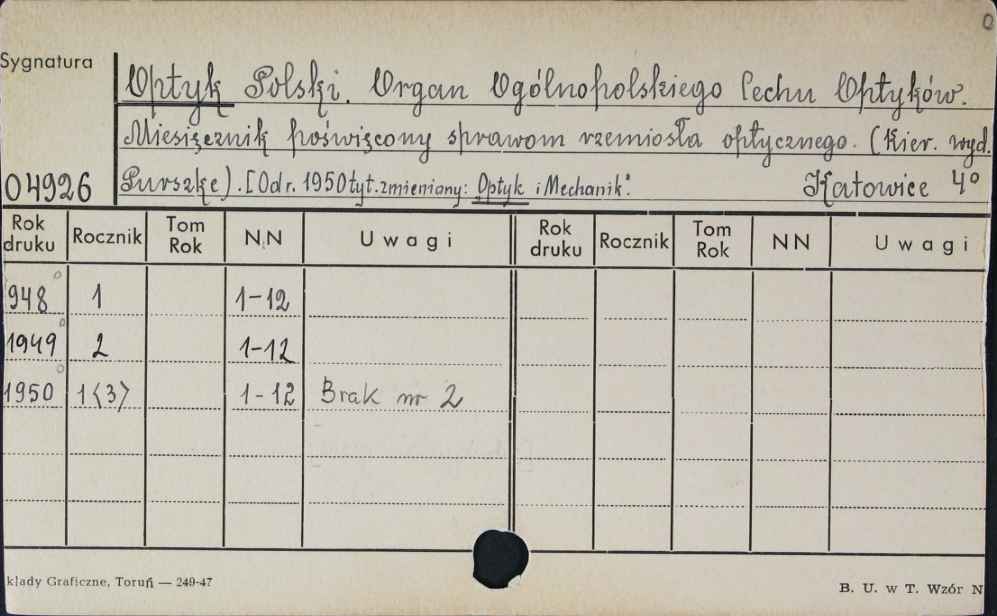 Sygnatura
Optyk Polski. Organ Ogólnopolskiego Cechu Optyków.
Miesięcznik poświęcony sprawom rzemiosła optycznego. (Kier. wyd.
04926 Purszke). [Od r. 1950 tyt. zmieniony: Optyk i Mechanik". Katowice 4°
Rok druku Rocznik Tom Rok NN Uwagi Rok druku Rocznik Tom Rok NN Uwagi
948 1 1-12
1949 2 1-12
1950 1(3) 1-12 Brak nr 2
kłady Graficzne, Toruń — 249-47
B. U. w T. Wzór N